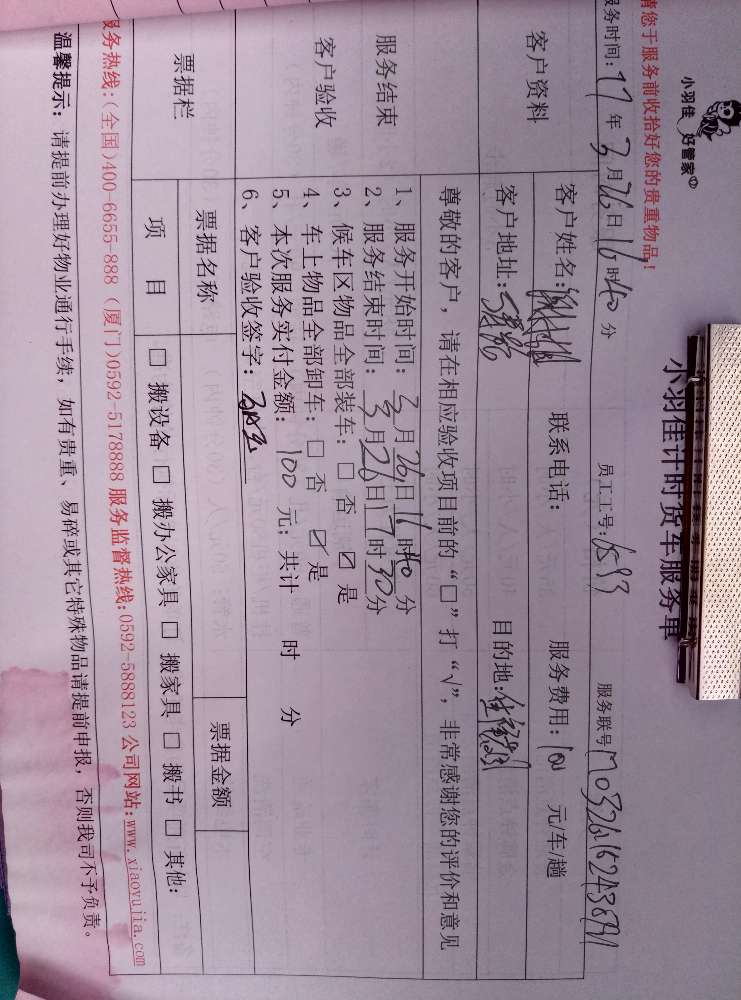 小羽佳 好管家
小羽佳计时货车服务单
请您于服务前收拾好您的贵重物品!
服务时间: 17 年 3 月 26 日 16 时 40 分 员工工号: 服务联号
客户资料
客户姓名: 联系电话: 服务费用: 100 元/车/趟
客户地址: 目的地:
服务结束
客户验收
尊敬的客户，请在相应验收项目前的“□”打“√”, 非常感谢您的评价和意见
1、服务开始时间: 3 月 26 日 16 时 40 分
2、服务结束时间: 3 月 26 日 17 时 30 分
3、候车区物品全部装车: □ 否 ☑ 是
4、车上物品全部卸车: □ 否 ☑ 是
5、本次服务实付金额: 100 元; 共计 时 分
6、客户验收签字:
票据栏
票据名称 票据金额
项 目 □ 搬设备 □ 搬办公家具 □ 搬家具 □ 搬书 □ 其他:
服务热线:(全国)400-6655-888 (厦门)0592-5178888 服务监督热线:0592-5888123 公司网站:www.xiaoyujia.com
温馨提示: 请提前办理好物业通行手续, 如有贵重、易碎或其它特殊物品请提前申报, 否则我司不予负责。